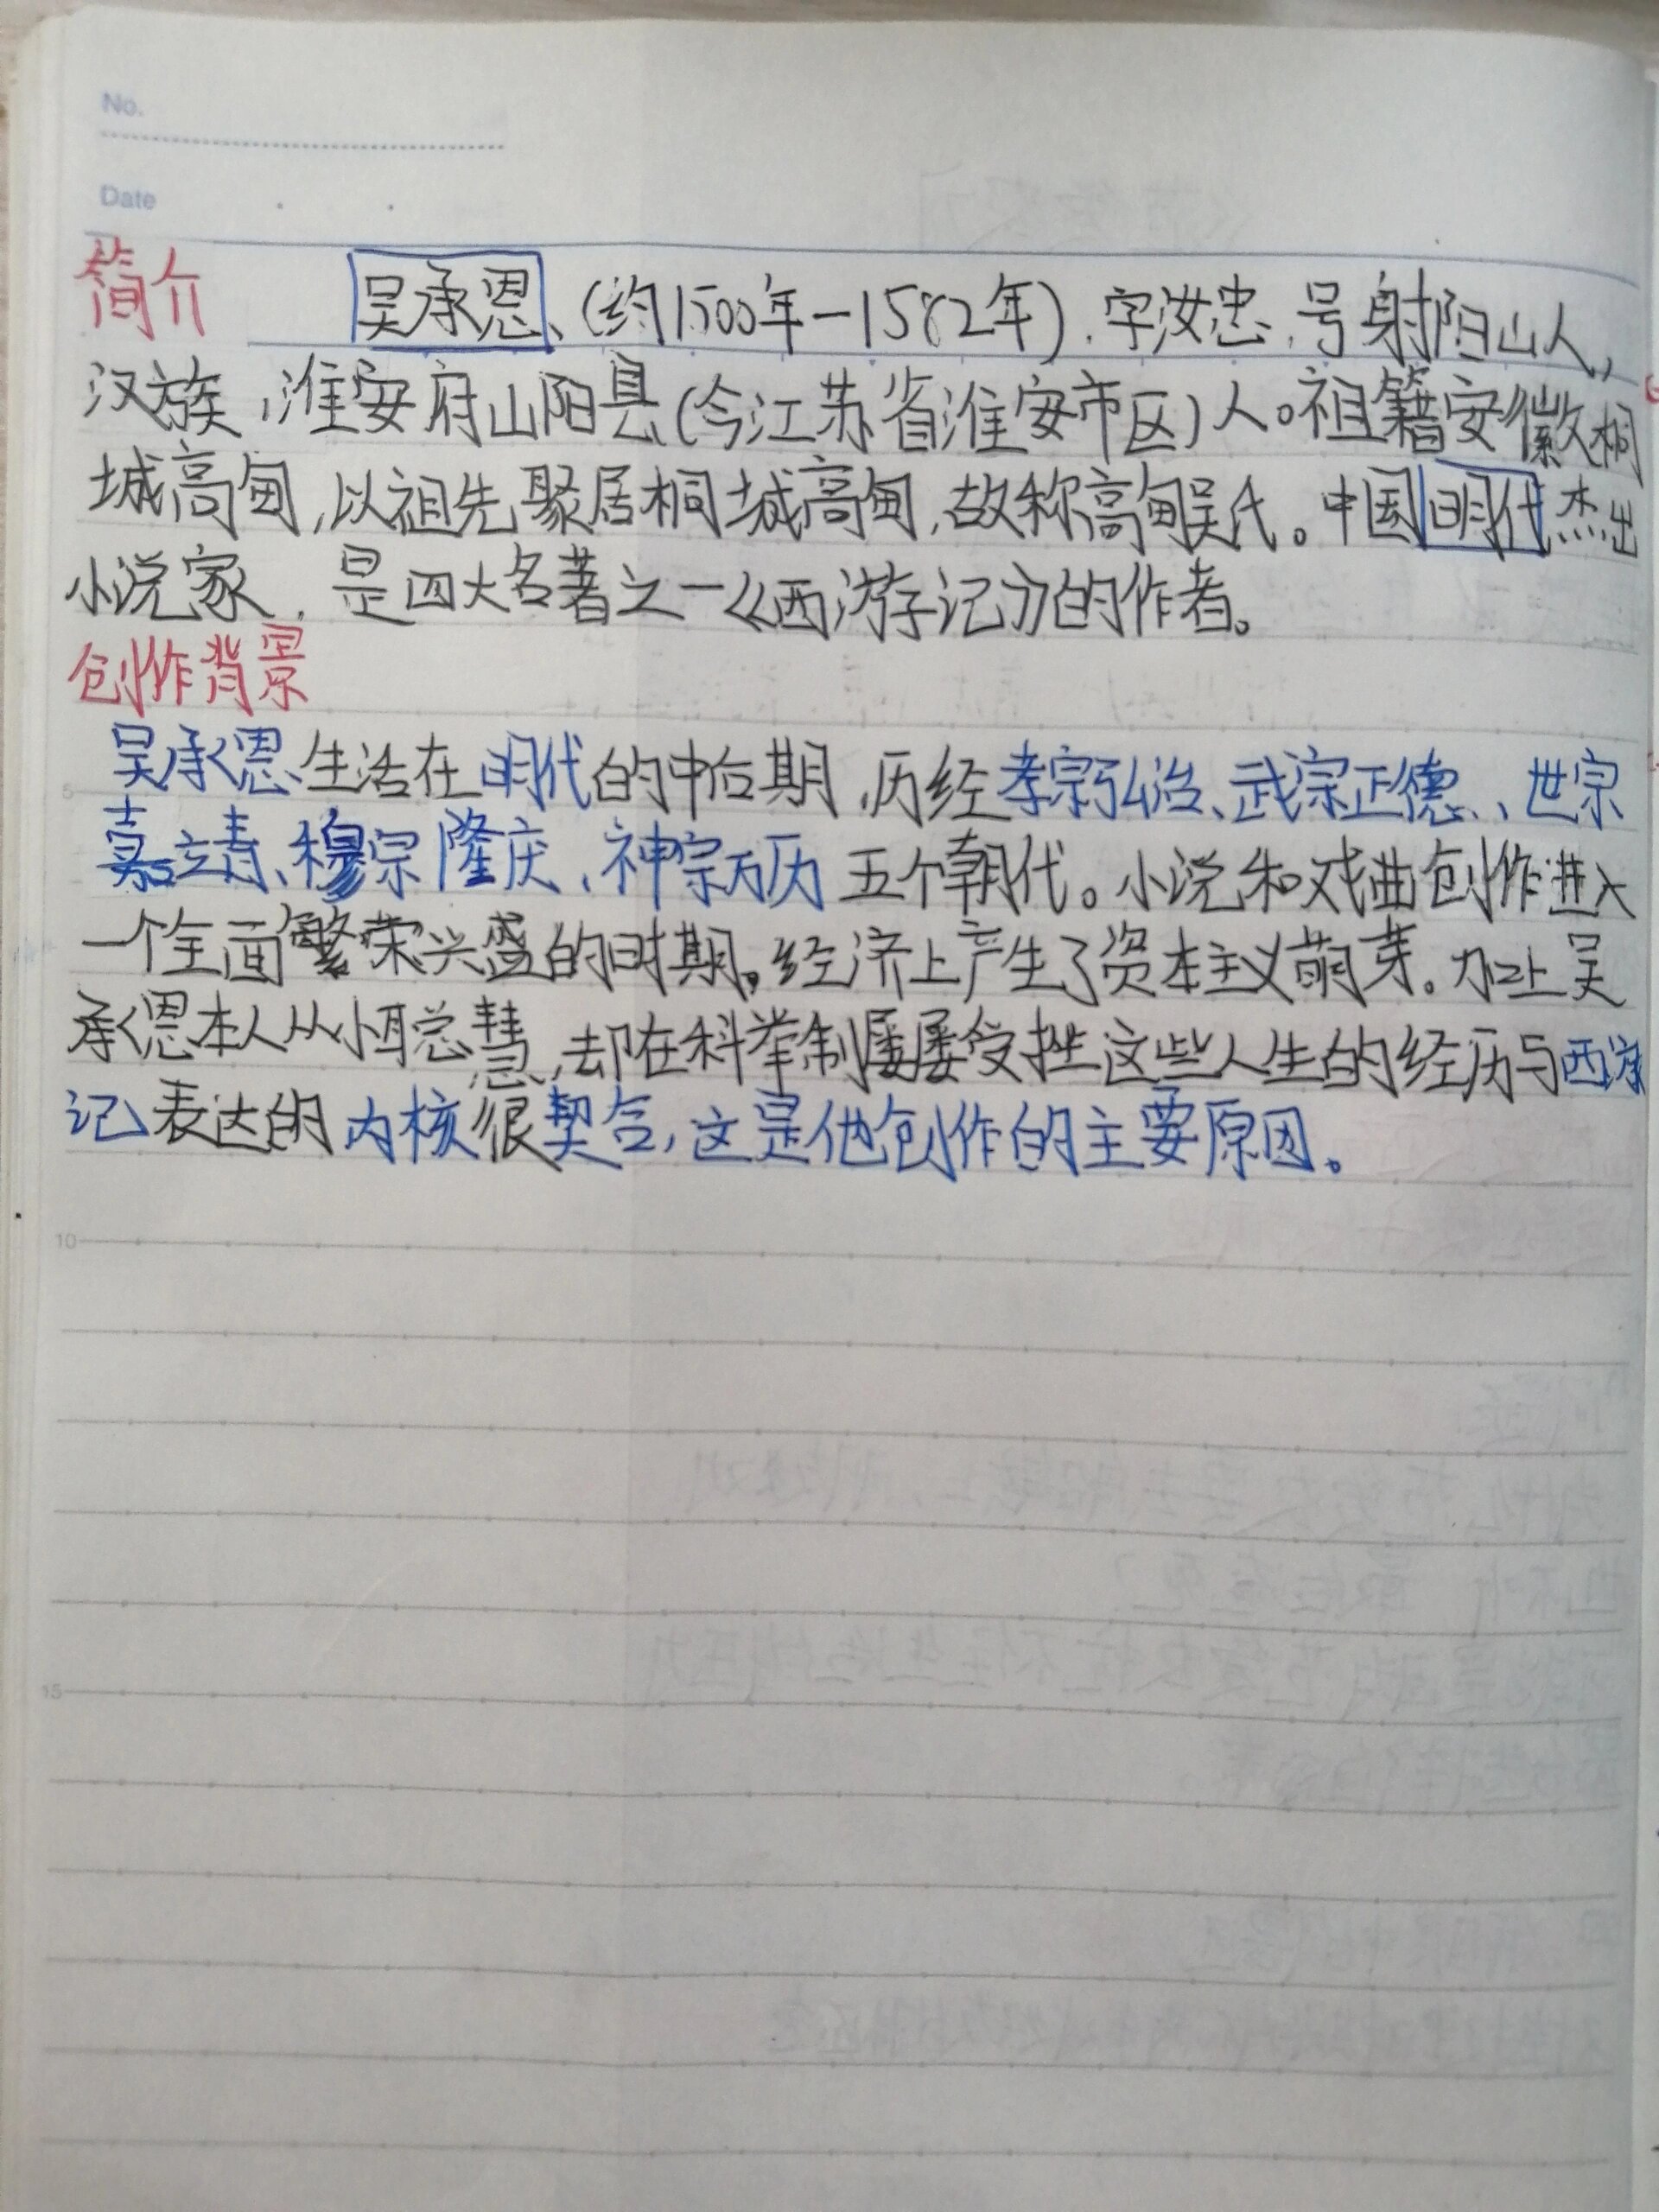 No.
Date
简介 吴承恩、(约1500年-1582年),字汝忠,号射阳山人,
汉族,淮安府山阳县(今江苏省淮安市区)人。祖籍安徽桐
城高甸,以祖先聚居桐城高甸,故称高甸吴氏。中国明代杰出
小说家,是四大名著之一《西游记》的作者。
创作背景
吴承恩生活在明代的中后期,历经孝宗弘治、武宗正德、世宗
嘉靖、穆宗隆庆、神宗万历五个朝代。小说和戏曲创作进入
一个全面繁荣兴盛的时期。经济上产生了资本主义萌芽。加上吴
承恩本人从小聪慧,却在科举制屡屡受挫这些人生的经历与西游
记表达的内核很契合,这是他创作的主要原因。
5
10
15